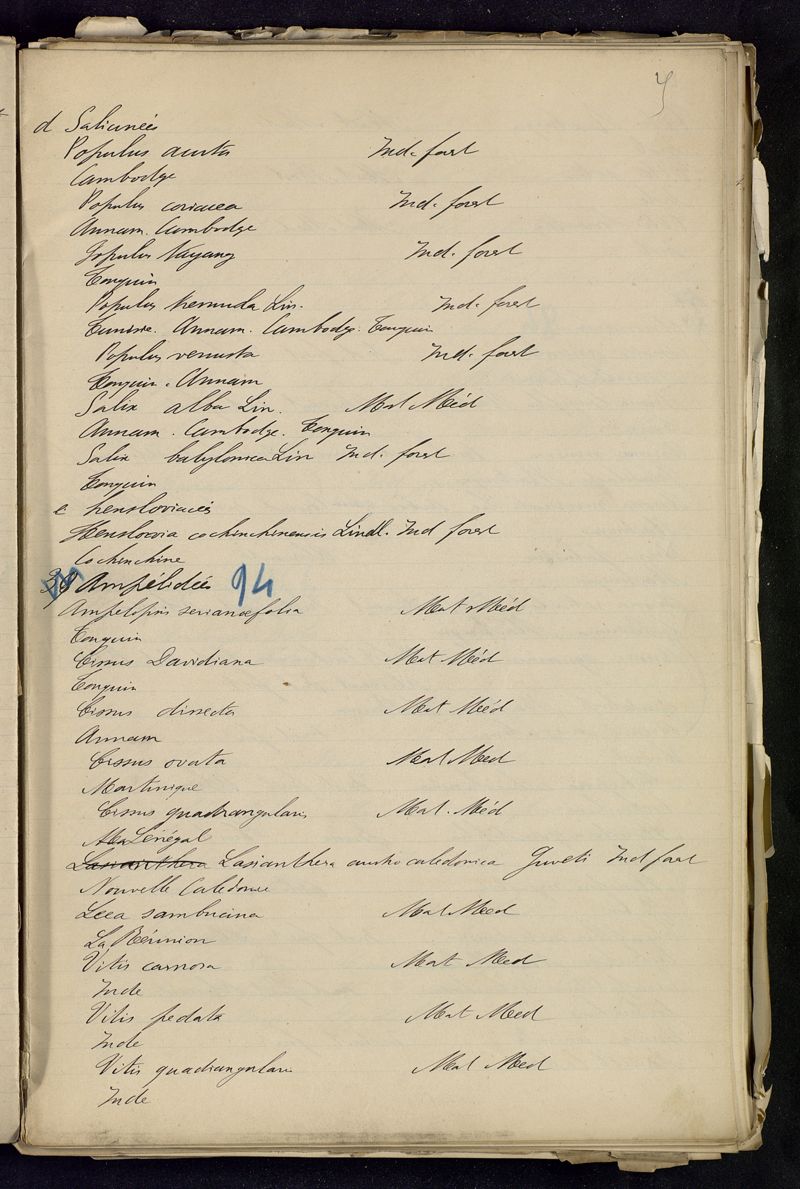 d Salicinées
Populus acuta Ind. forest
Cambodge
Populus coriacea Ind. forest
Annam. Cambodge
Populus Vayang Ind. forest
Tonquin
Populus tremula Lin. Ind. forest
Tunisie. Annam. Cambodge. Tonquin
Populus venusta Ind. forest
Tonquin. Annam
Salix alba Lin. Mat Méd
Annam. Cambodge. Tonquin
Salix babylonica Lin Ind. forest
Tonquin
e hensloviacés
Henslowia cochinchinensis Lindl. Ind forest
Cochinchine
Ampélidées 94
Ampelopsis serianaefolia Mat Méd
Tonquin
Cissus Davidiana Mat Méd
Tonquin
Cissus dissecta Mat Méd
Annam
Cissus ovata Mat Med
Martinique
Cissus quadrangularis Mat. Méd
Sénégal
Lasianthera Lasianthera austro caledonica Ind forest
Nouvelle Caledonie
Leea sambucina Mat Med
La Réunion
Vitis carnosa Mat Med
Inde
Vitis pedata Mat Med
Inde
Vitis quadrangularis Mat Med
Inde